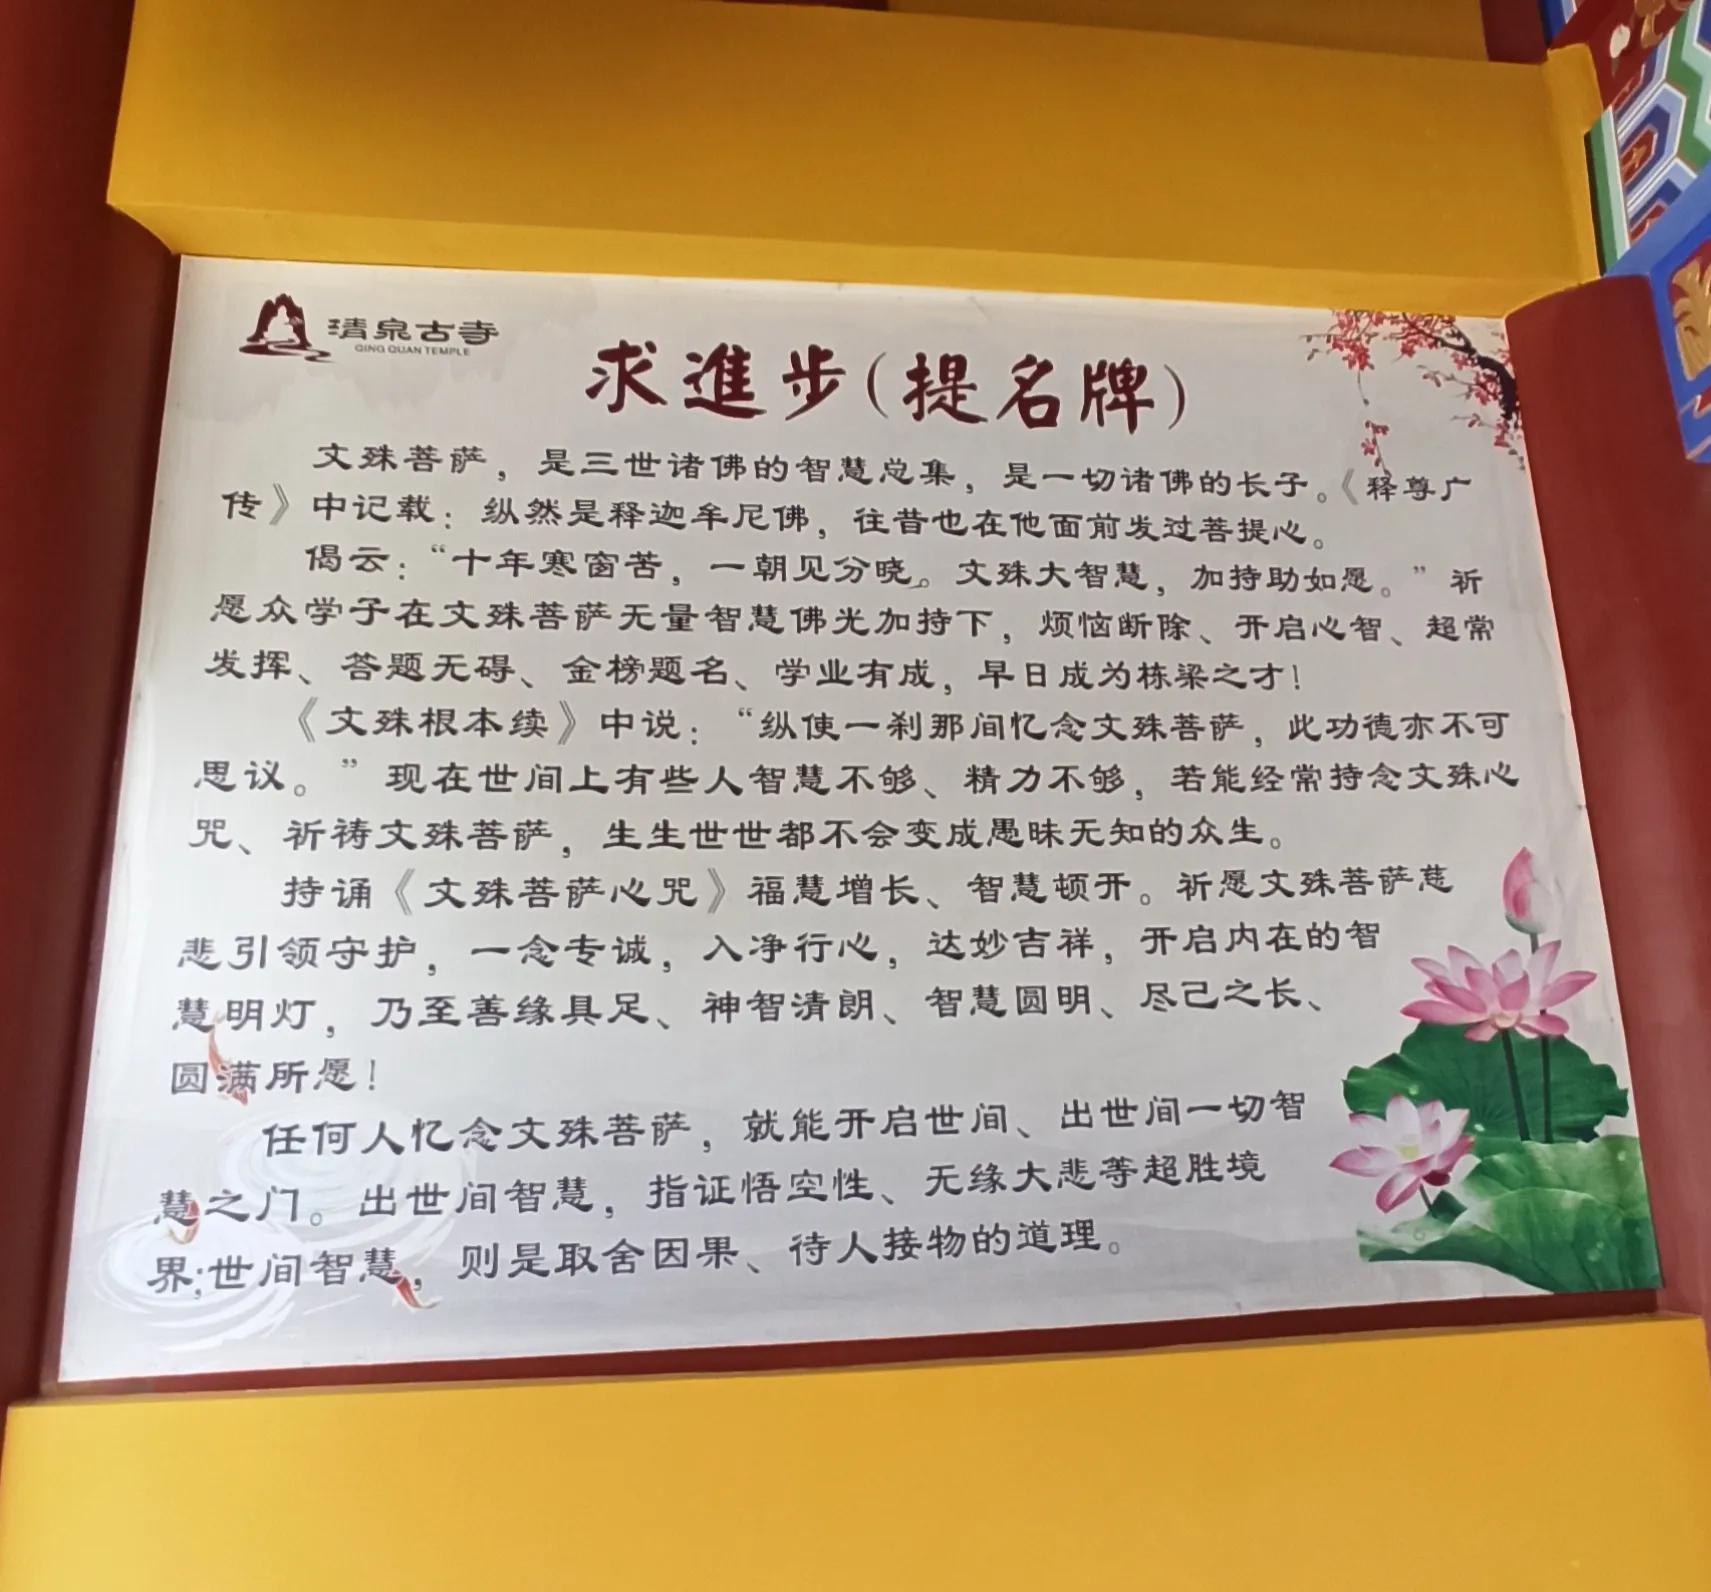 清泉古寺
QING QUAN TEMPLE
求進步(提名牌)
文殊菩萨，是三世诸佛的智慧总集，是一切诸佛的长子。《释尊广
传》中记载：纵然是释迦牟尼佛，往昔也在他面前发过菩提心。
偈云：“十年寒窗苦，一朝见分晓。文殊大智慧，加持助如愿。”祈
愿众学子在文殊菩萨无量智慧佛光加持下，烦恼断除、开启心智、超常
发挥、答题无碍、金榜题名、学业有成，早日成为栋梁之才！
《文殊根本续》中说：“纵使一刹那间忆念文殊菩萨，此功德亦不可
思议。”现在世间上有些人智慧不够、精力不够，若能经常持念文殊心
咒、祈祷文殊菩萨，生生世世都不会变成愚昧无知的众生。
持诵《文殊菩萨心咒》福慧增长、智慧顿开。祈愿文殊菩萨慈
悲引领守护，一念专诚，入净行心，达妙吉祥，开启内在的智
慧明灯，乃至善缘具足、神智清朗、智慧圆明、尽己之长、
圆满所愿！
任何人忆念文殊菩萨，就能开启世间、出世间一切智
慧之门。出世间智慧，指证悟空性、无缘大悲等超胜境
界;世间智慧，则是取舍因果、待人接物的道理。